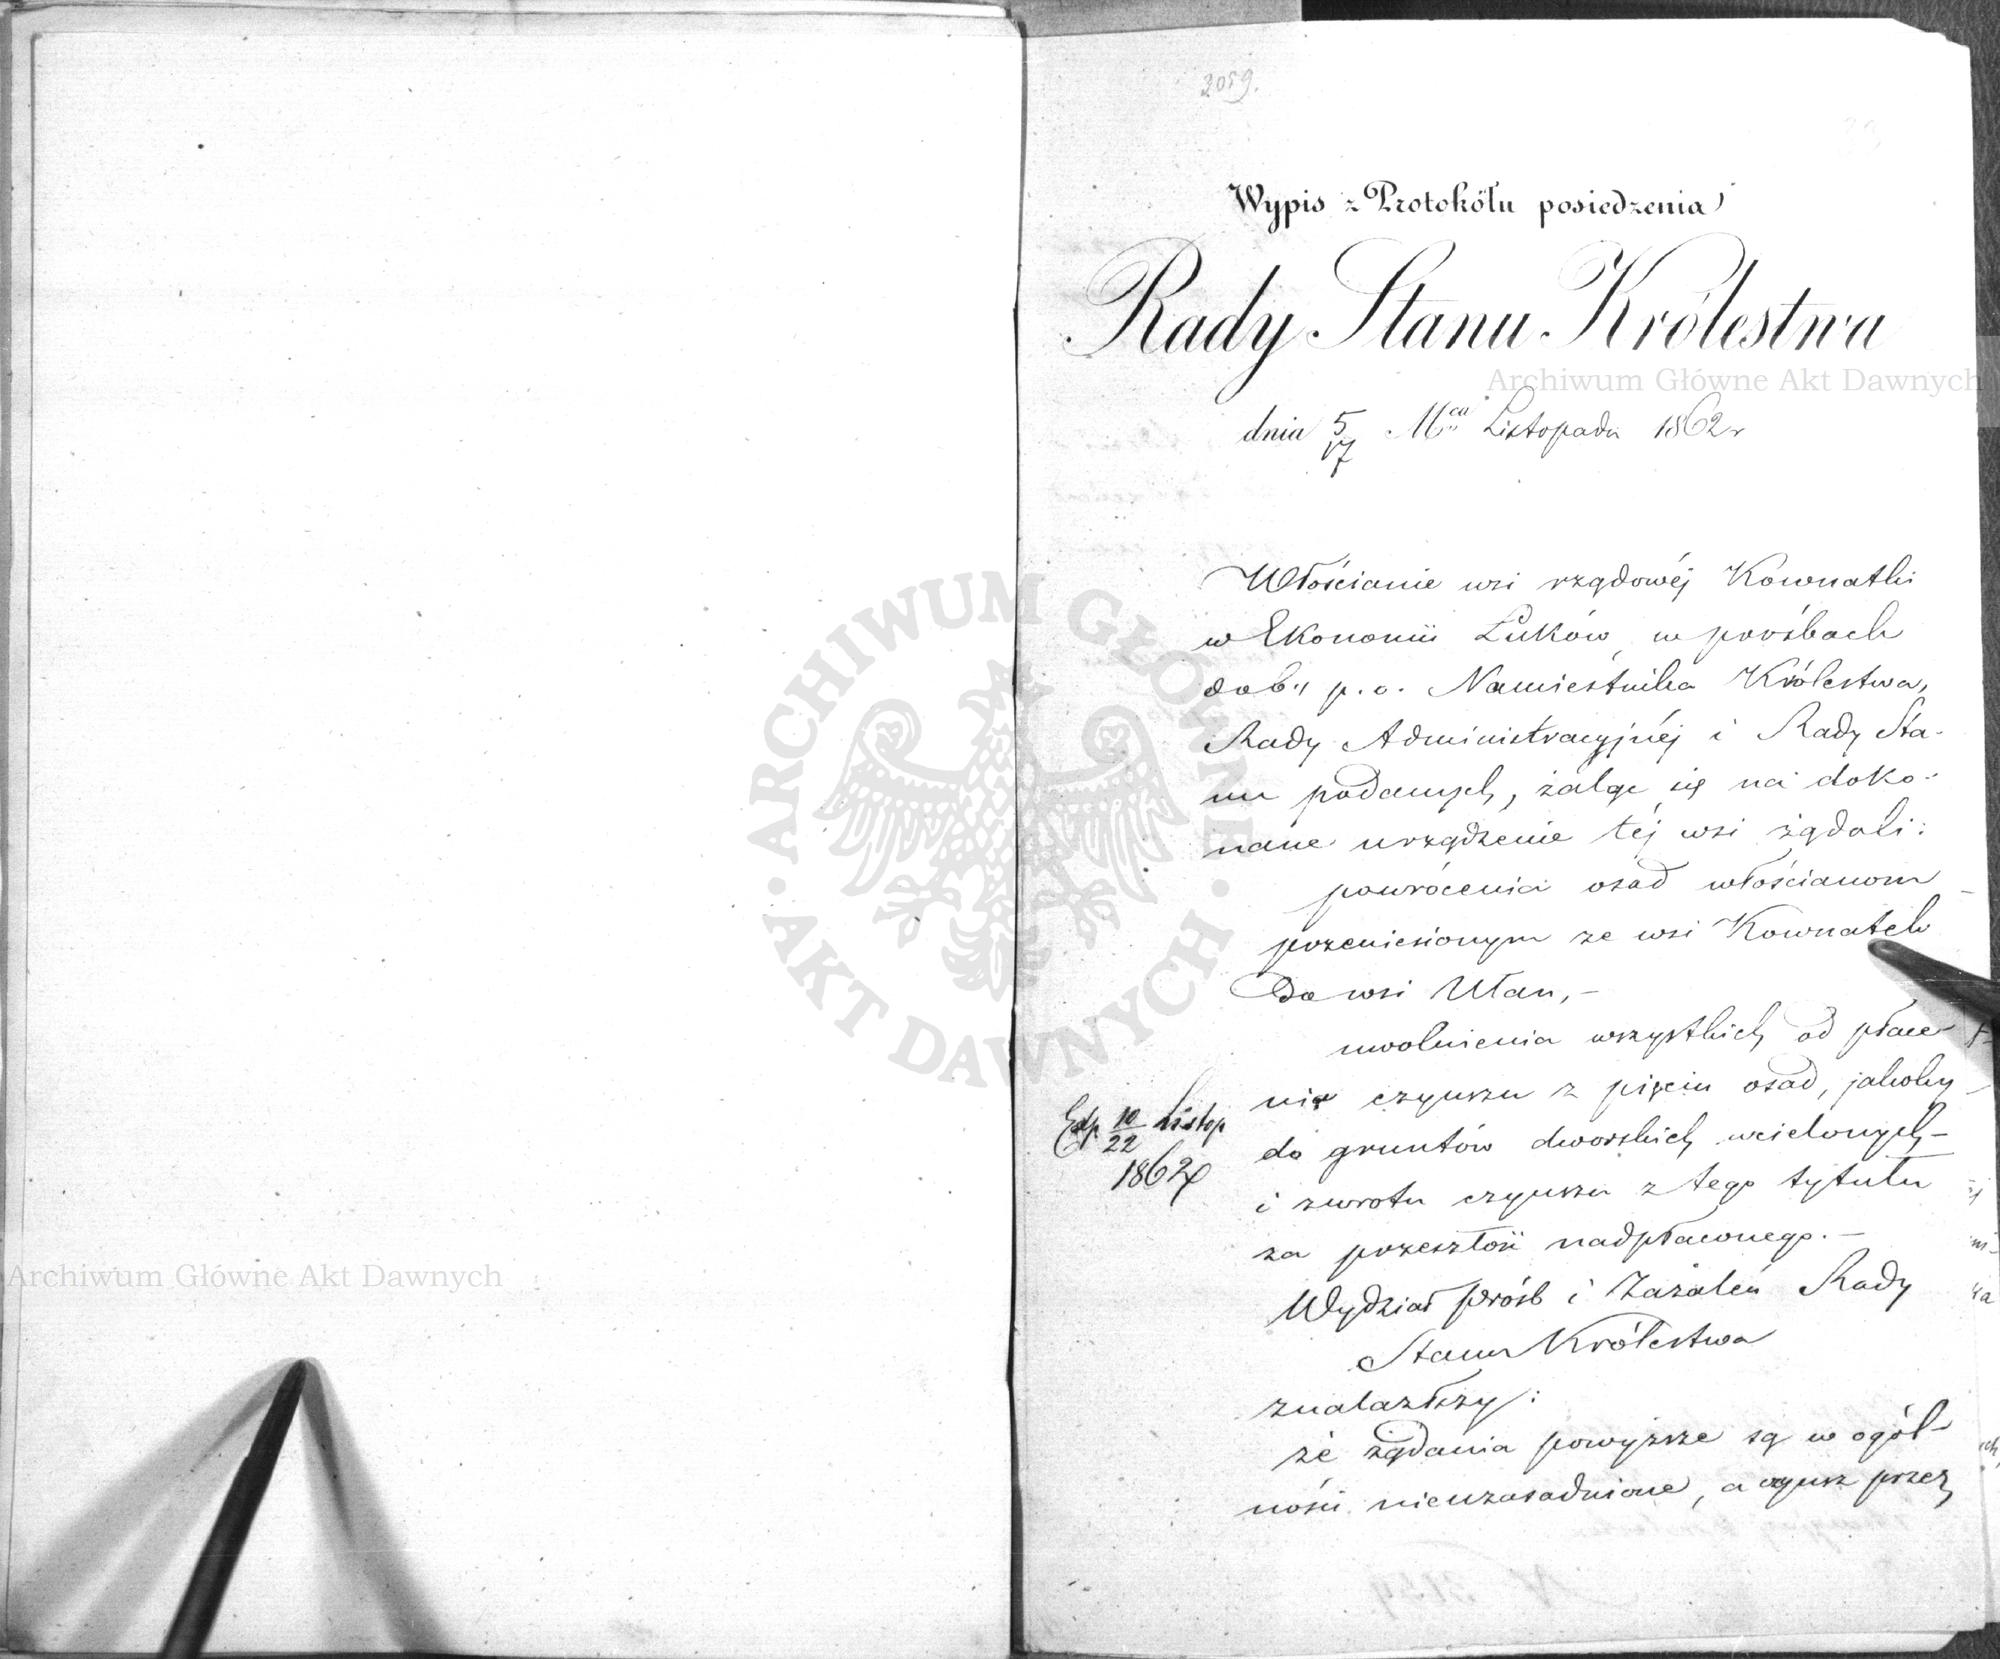 3059.
Wypis z Protokółu posiedzenia
Rady Stanu Królestwa
dnia 5/17 Mca Listopada 1862 r
Włościanie wsi rządowéj Kownatki
w Ekonomii Łuków w prośbach
do b. p. o. Namiestnika Królestwa,
Rady Administracyjnéj i Rady Sta-
nu podanych, żaląc się na doko-
nane urządzenie téj wsi żądali:
powrócenia osad włościanom
przeniesionym ze wsi Kownatek
do wsi Ulan, –
uwolnienia wszystkich od płace-
nia czynszu z pięciu osad, jakoby
do gruntów dworskich wcielonych –
i zwrotu czynszu z tego tytułu
za przeszłość nadpłaconego. –
Exp 10/22 Listop
1862
Wydział próśb i Zażaleń Rady
Stanu Królestwa
znalazłszy:
że żądania powyższe są w ogól-
ności nieuzasadnione, a czynsz przez
Archiwum Główne Akt Dawnych
Archiwum Główne Akt Dawnych
ARCHIWUM GŁÓWNE · AKT DAWNYCH ·